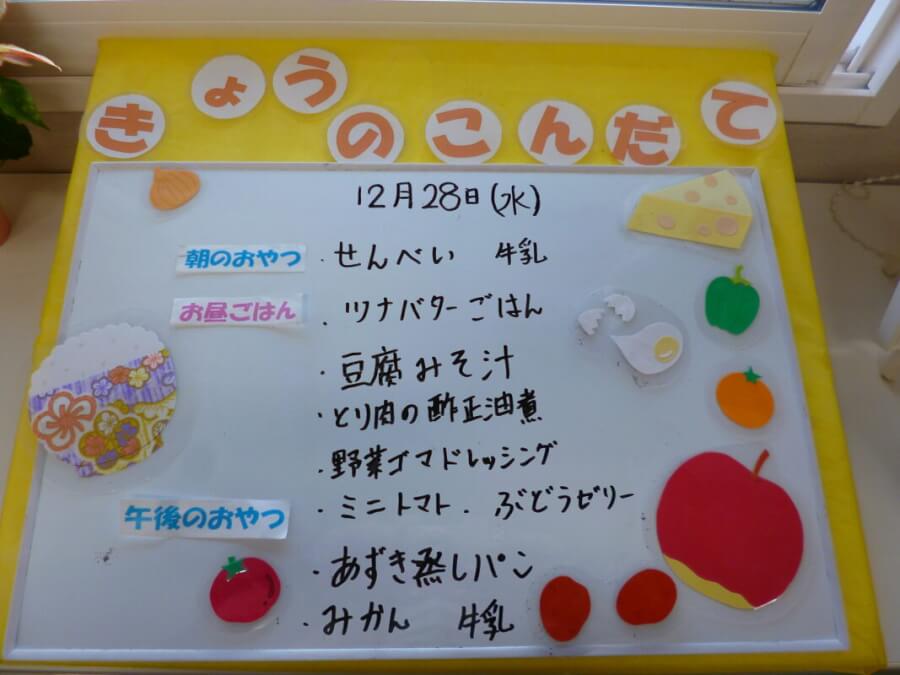 きょうのこんだて
12月28日(水)
朝のおやつ ・せんべい 牛乳
お昼ごはん ・ツナバターごはん
・豆腐みそ汁
・とり肉の酢正油煮
・野菜ゴマドレッシング
・ミニトマト・ぶどうゼリー
午後のおやつ
・あずき蒸しパン
・みかん 牛乳